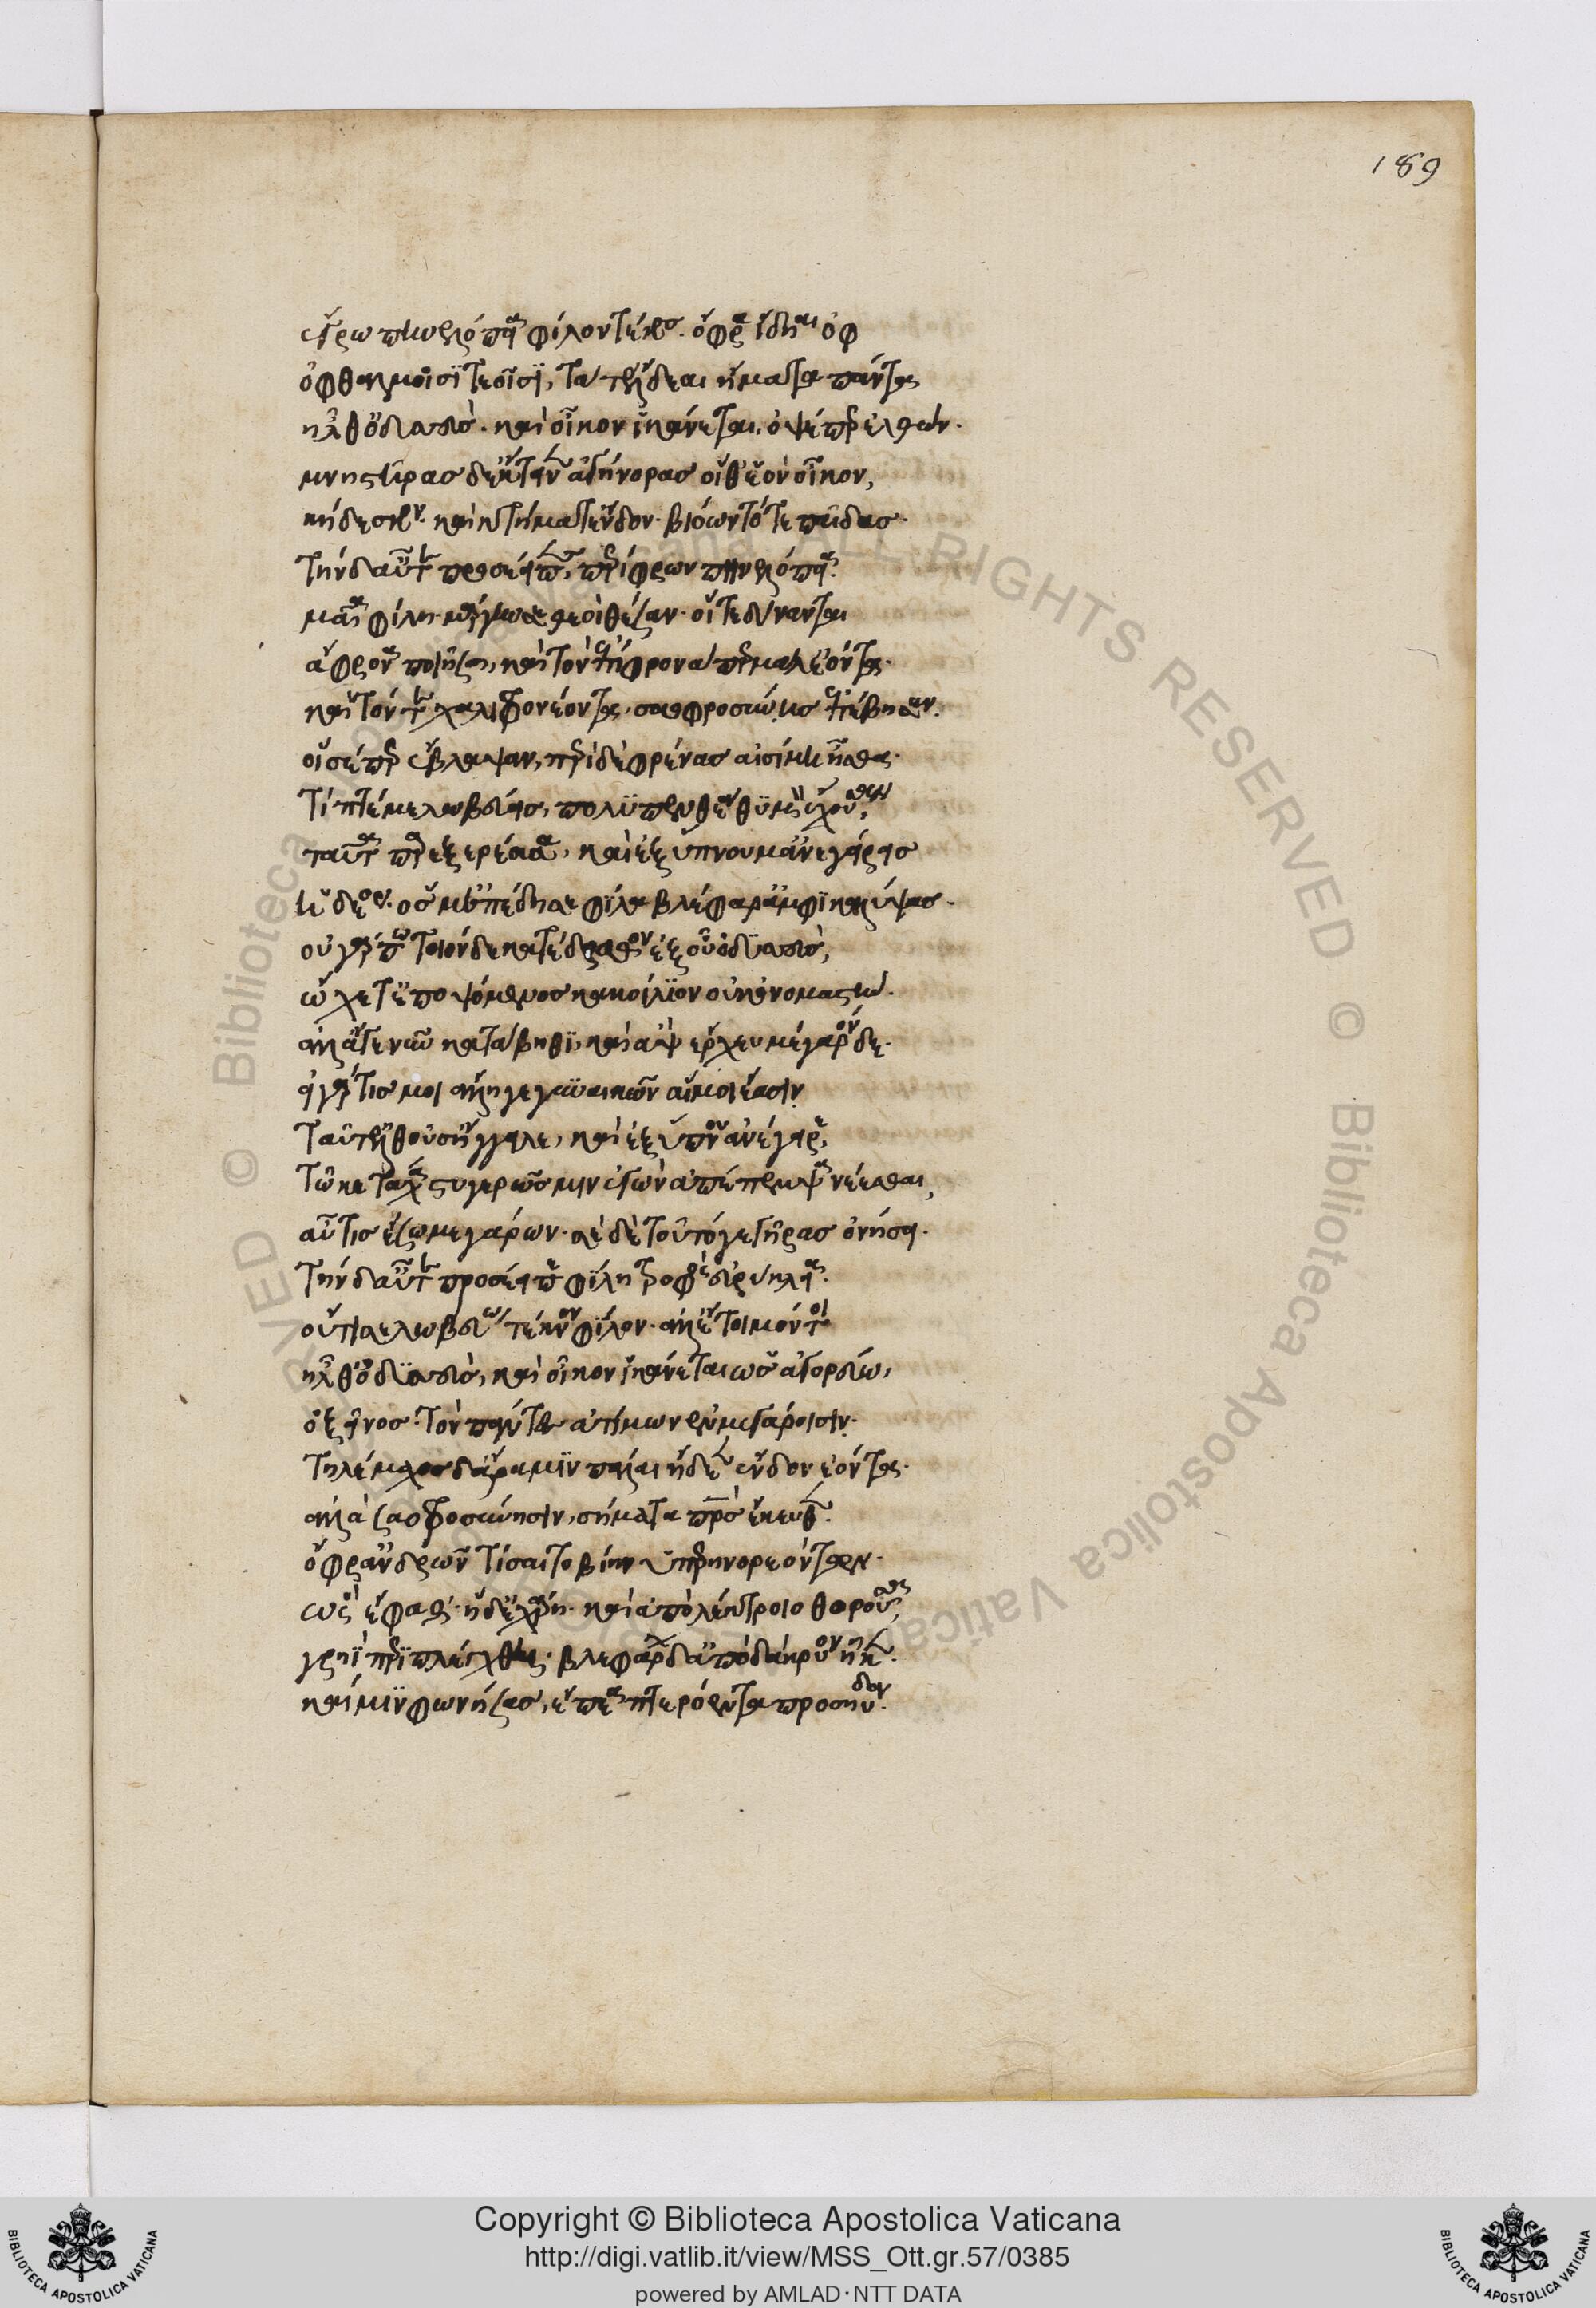 189
ἔγρω πηνελόπεια φίλον τέκος. ὄφρα ἴδηαι ὀφ
ὀφθαλμοῖσι τεοῖσι, τά τ' ἔλδεαι ἤματα πάντα
ἦλθ' ὀδυσεὺς. καὶ οἶκον ἱκάνεται, ὀψέ περ ἐλθών.
μνηστῆρας δ' ἔκτεινεν ἀγήνορας οἵ θ' ἑὸν οἶκον,
κήδεσκον. καὶ κτήματ' ἔδον. βιόωντό τε παῖδας.
τὴν δ' αὖτε προσέειπε, περίφρων πηνελόπεια.
μαῖα φίλη. μάργην σε θεοὶ θέσαν. οἵ τε δύνανται
ἄφρονα ποιῆσαι, καὶ ἐπίφρονα περ μάλ' ἐόντα.
καί τε χαλιφρονέοντα, σαοφροσύνης ἐπέβησαν.
οἵ σέ περ ἔβλαψαν, πρὶν δὲ φρένας αἰσίμη ἦσθας.
τίπτέ με λωβεύεις, πολυπενθέα θυμὸν ἔχουσαν,
ταῦτα παρὲξ ἐρέουσα, καὶ ἐξ ὕπνου μ' ἀνεγείρεις
ἡδέος. ὅς μ' ἐπέδησε φίλα βλέφαρ' ἀμφικαλύψας.
οὐ γάρ πω τοιόνδε κατέδραθον ἐξ οὗ ὀδυσεὺς,
ᾤχετ' ἐποψόμενος κακοΐλιον οὐκ ὀνομαστήν.
ἀλλ' ἄγε νῦν κατάβηθι, καὶ ἂψ ἔρχευ μέγαρόνδε.
εἰ γάρ τίς μοι ἄλλη γε γυναικῶν αἵ μοι ἔασιν
ταῦτ' ἐλθοῦσ' ἤγγειλε, καὶ ἐξ ὕπνου ἀνέγειρε,
τῷ κε τάχα στυγερῶς μιν ἐγὼν ἀπέπεμψα νέεσθαι,
αὖτις ἔσω μεγάρων. σὲ δὲ τοῦτό γε γῆρας ὀνήσει.
τὴν δ' αὖτε προσέειπε φίλη τροφὸς εὐρύκλεια.
οὔ τί σε λωβεύω τέκνον φίλον. ἀλλ' ἔτυμόν τοι
ἦλθ' ὀδυσεὺς, καὶ οἶκον ἱκάνεται ὡς ἀγορεύω,
ὁ ξεῖνος. τὸν πάντες ἀτίμων ἐν μεγάροισιν.
τηλέμαχος δ' ἄρα μιν πάλαι ᾔδεεν ἔνδον ἐόντα.
ἀλλὰ σαοφροσύνησιν, νοήματα πατρὸς ἔκευθεν.
ὄφρ' ἀνδρῶν τίσαιτο βίην ὑπερηνορεόντων.
ὡς ἔφαθ'. ἡ δ' ἐχάρη. καὶ ἀπὸ λέκτροιο θοροῦσα,
γρηῒ περιπλέχθη. βλεφάρων δ' ἀπὸ δάκρυον ἧκεν.
καί μιν φωνήσασ', ἔπεα πτερόεντα προσηύδα.
Copyright © Biblioteca Apostolica Vaticana
http://digi.vatlib.it/view/MSS_Ott.gr.57/0385
powered by AMLAD·NTT DATA